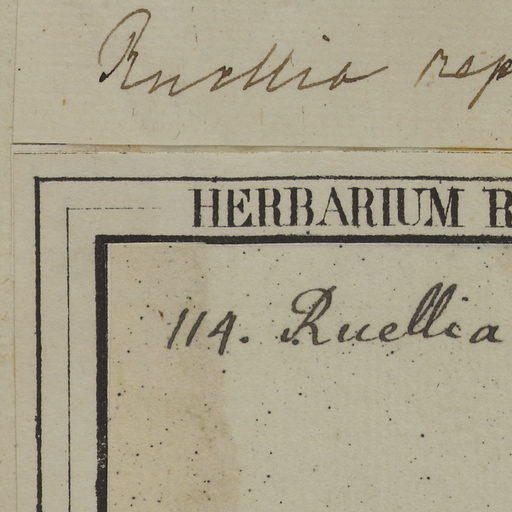 Ruellia rep
HERBARIUM R
114. Ruellia